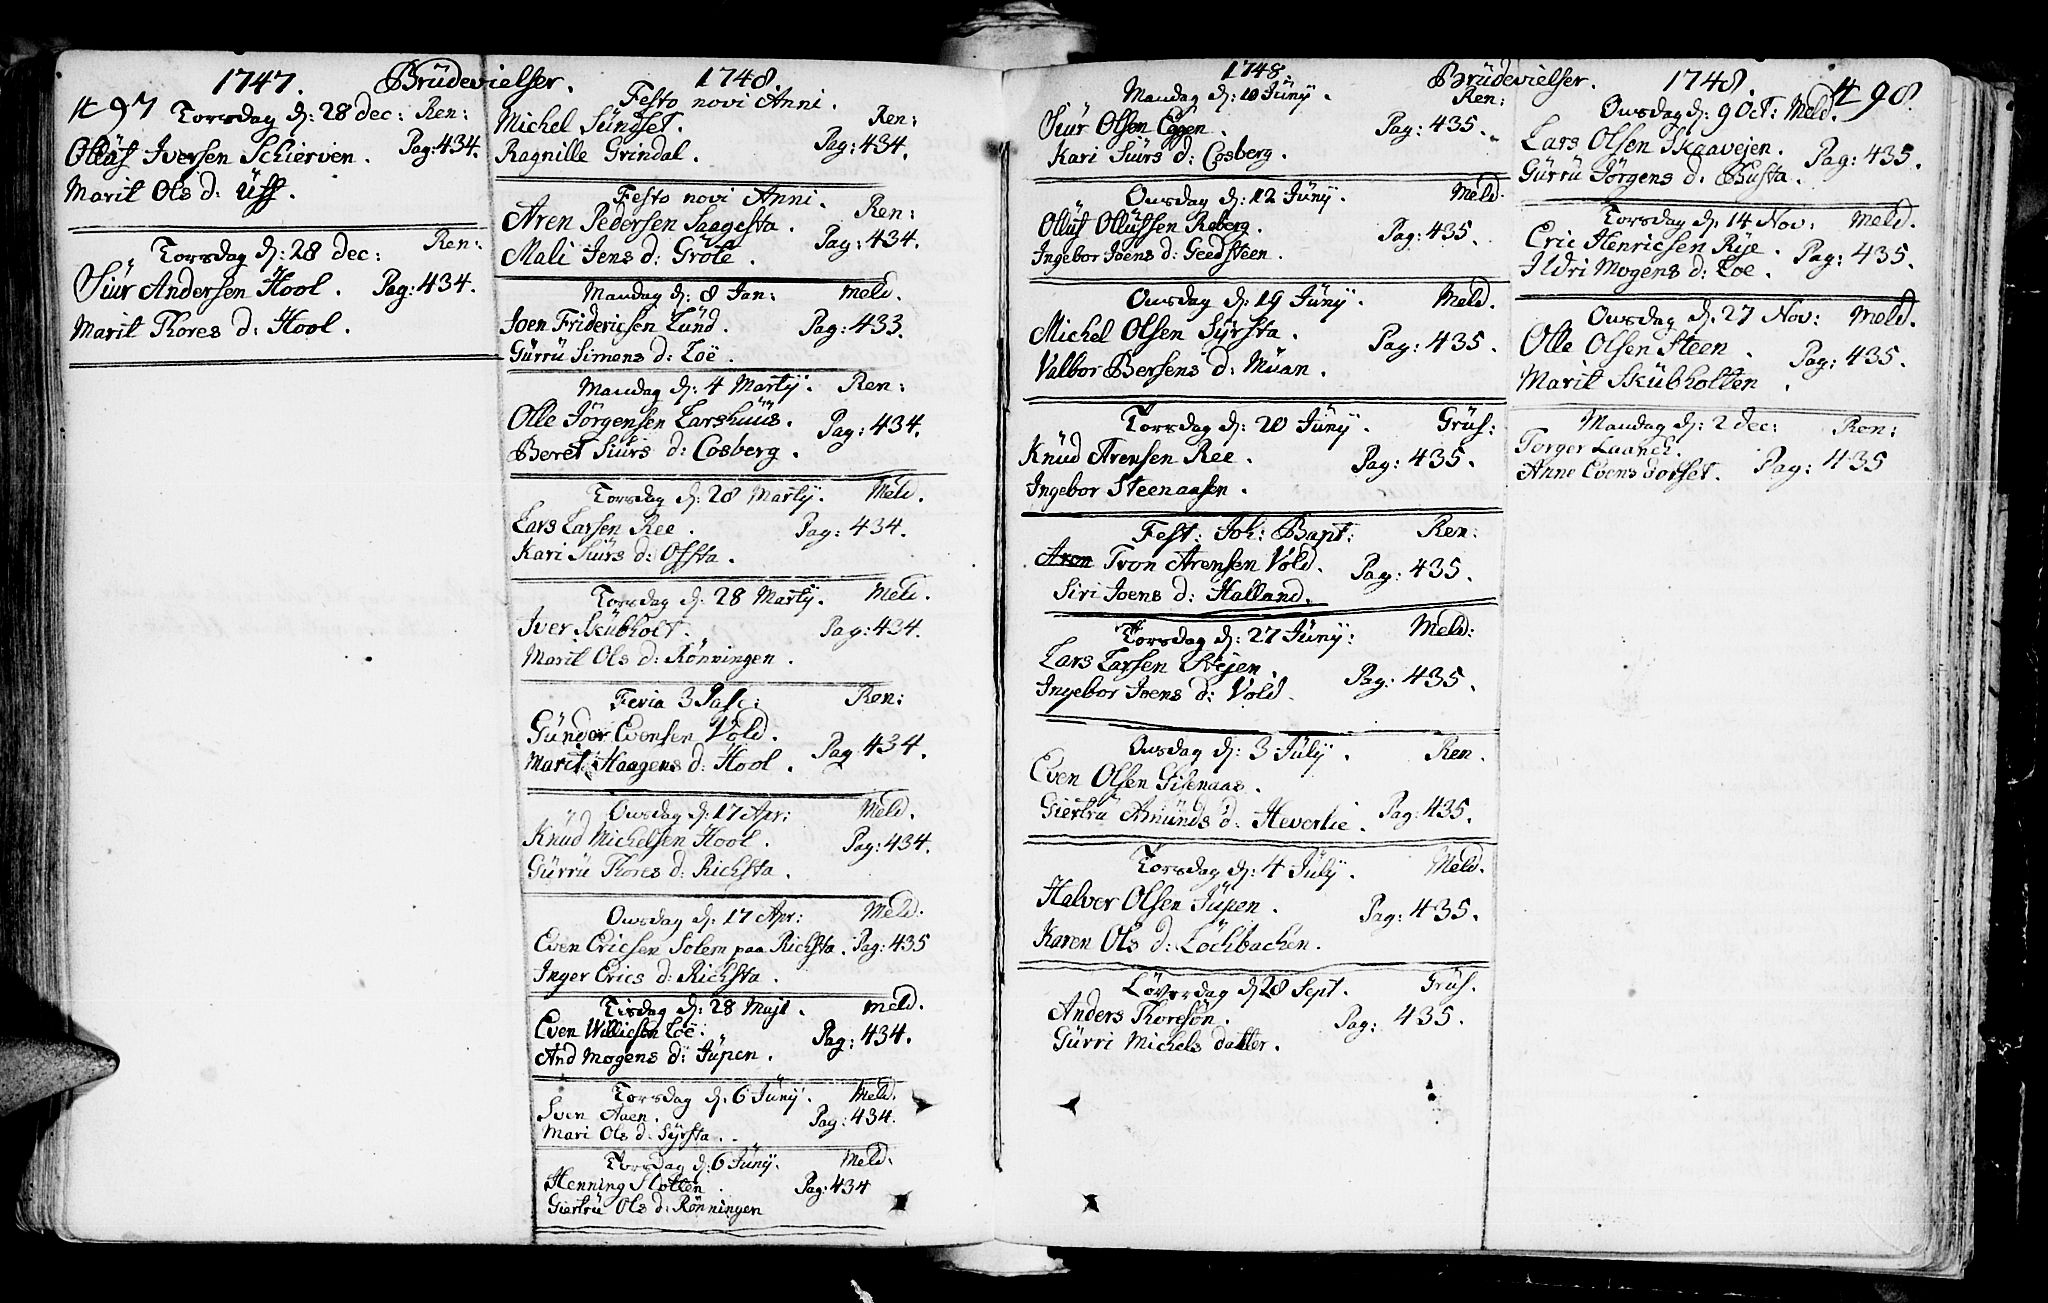 1747. Brüdevielser. 1748.
497 Torsdag d: 28 dec: Ren:
Olluf Iversen Schierven. Pag: 434.
Marit Ols d: Uff.
Torsdag d: 28 dec: Ren:
Siur Andersen Hool. Pag: 434.
Marit Thores d: Hool.
Festo novi Anni.
Michel Sundset. Ren:
Ragnille Grindal. Pag: 434.
Festo novi Anni.
Aren Pedersen Saagesta. Ren:
Mali Jens d: Grôte. Pag: 434.
Mandag d: 8 Jan: Meld.
Joen Friderichsen Lünd. Pag: 433.
Gürrü Simens d: Loë.
Mandag d: 4 Martij. Ren:
Olle Jörgensen Larshüüs. Pag: 434.
Beret Siürs d: Cosberg.
Torsdag d: 28 Martij. Meld.
Lars Larsen Ree. Pag: 434.
Kari Siürs d: Ofsta.
Torsdag d: 28 Martij. Meld.
Iver Skübholt. Pag: 434.
Marit Ols d: Rönningen.
Feria 3 Pasc: Ren:
Günder Evensen Vold.
Marit Haagens d: Hool. Pag 434.
Onsdag d: 17 Apr: Meld.
Knud Michelsen Hool. Pag: 434.
Gürrü Thores d: Richsta.
Onsdag d: 17 Apr: Meld.
Even Ericsen Solem paa Richsta. Pag: 435
Inger Erics d: Richsta.
Tisdag d: 28 Maji. Meld.
Even Willicsen Loë. Pag: 434.
And Mogens d: Jüpen.
Torsdag d: 6 Jünij. Meld.
Sven Aaen. Pag: 434.
Mari Ols d: Syrsta.
Torsdag d: 6 Junij. Meld.
Henning Slotten. Pag: 434
Giertrü Ols d: Rönningen
1748. Brüdevielser. 1748. 498.
Mandag d: 10 Jünij. Ren:
Siür Olsen Eggen. Pag: 435.
Kari Siürs d: Cosberg.
Onsdag d: 12 Jünij. Meld.
Ollüf Ollüfsen Reberg. Pag: 435.
Ingebor Joens d: Geedsteen.
Onsdag d: 19 Jünij. Meld.
Michel Olsen Syrsta. Pag: 435.
Valbor Bersens d: Müan.
Torsdag d: 20 Jünij. Grüs:
Knüd Arensen Ree. Pag: 435.
Ingebor Steenaasen.
Fest: Joh: Bapt: Ren:
Aren Tron Arensen Vold. Pag: 435.
Siri Joens d: Halland.
Torsdag d: 27 Jünij: Meld:
Lars Larsen Svejen. Pag: 435.
Ingebor Joens d: Vold.
Onsdag d: 3 Jülij. Ren.
Even Olsen Gisenaas.
Giertrü Amünds d: Heverlie. Pag: 435.
Torsdag d: 4 Jülij. Meld.
Halver Olsen Jüpen. Pag: 435.
Karen Ols d: Löchbachen.
Löverdag d 28 Sept. Grüs.
Anders Thoresön. Pag: 435.
Gürri Michels datter.
Onsdag d: 9 Oct: Meld.
Lars Olsen Skaavejen. Pag: 435.
Gürrü Jörgens d: Busta.
Torsdag d. 14 Nov: Meld.
Eric Henricsen Rye. Pag: 435.
Ildri Mogens d: Loe.
Onsdag d. 27 Nov: Meld.
Olle Olsen Steen. Pag: 435.
Marit Skübholten.
Mandag d: 2 Dec: Ren:
Torger Laanch.
Anne Evens Torset. Pag: 435